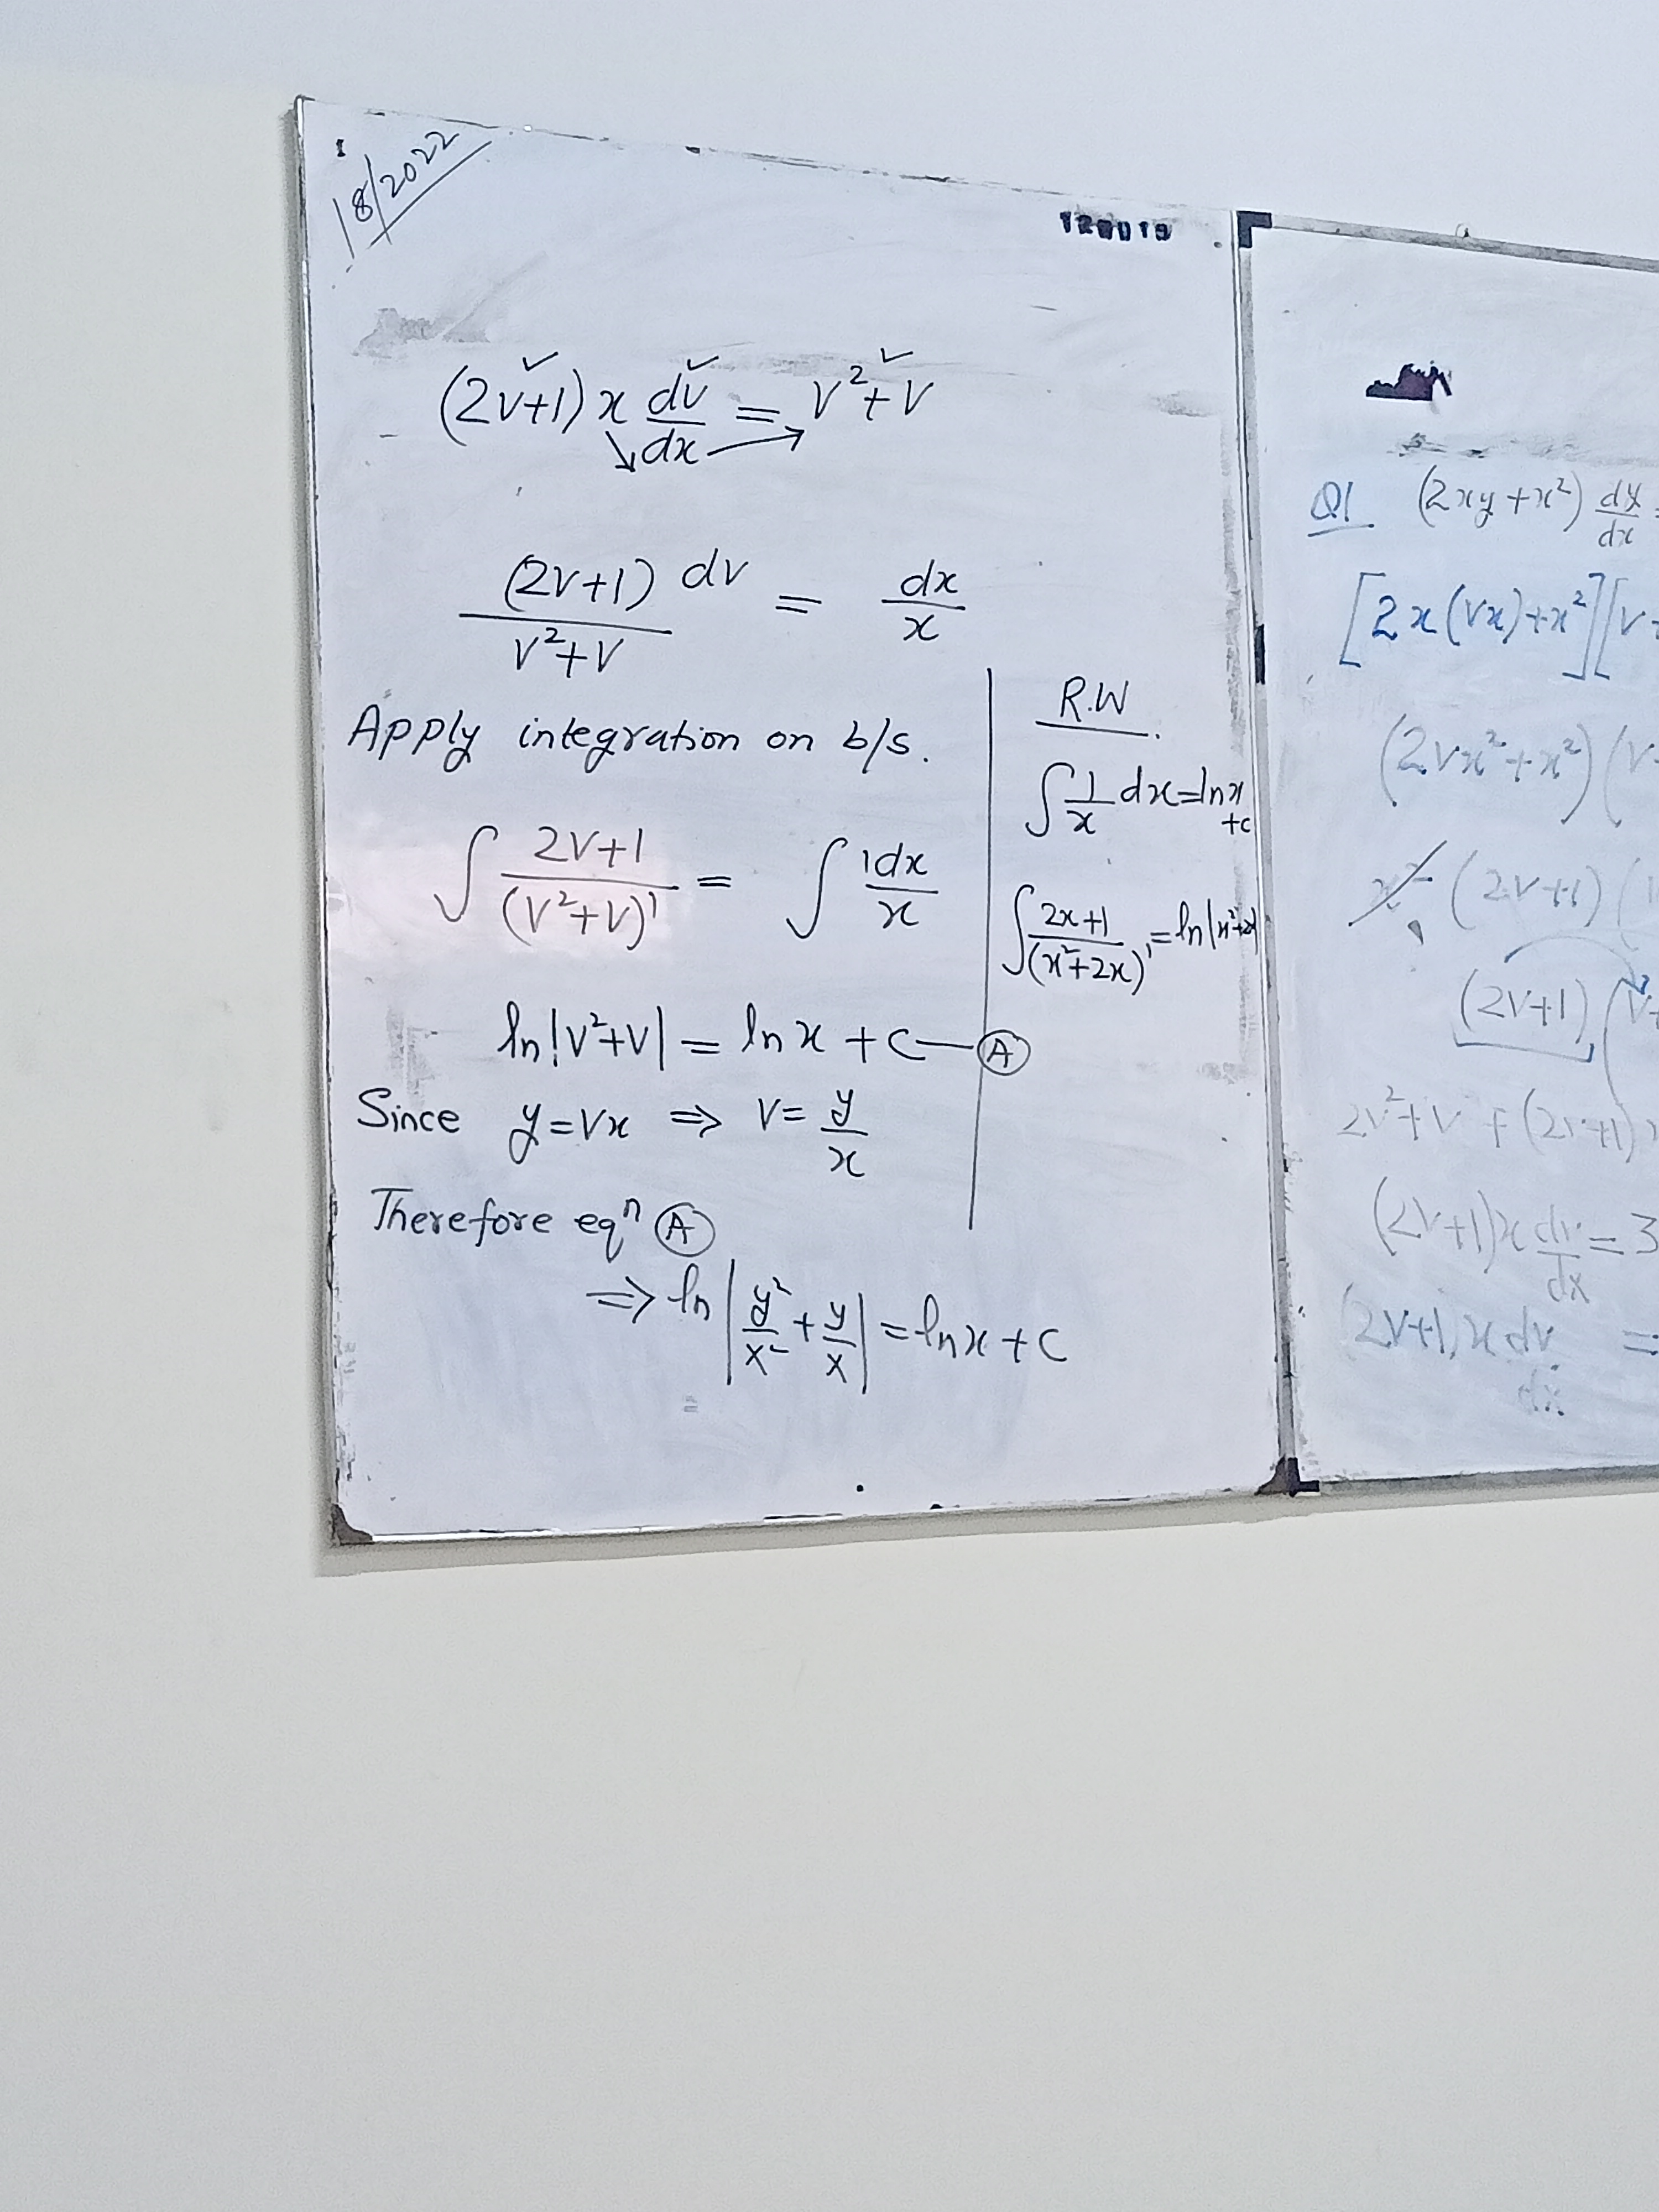 18/2022
(2v+1) x dv/dx = v²+v
(2v+1)/(v²+v) dv = dx/x
Apply integration on b/s.
∫ 2v+1/(v²+v)' = ∫ 1dx/x
ln|v²+v| = ln x + c — Ⓐ
Since y=vx ⇒ v= y/x
Therefore eqⁿ Ⓐ
⇒ ln |y²/x² + y/x| = ln x + c
R.W.
∫ 1/x dx = ln x
+c
∫ 2x+1/(x²+2x)' = ln|x²+2x|
Q1 (2xy+x²) dy/dx =
[2x(vx)+x²][v+
(2vx²+x²)(v+
x² (2v+1)(
(2v+1)(v+
2v²+v + (2v+1)x
(2v+1)x dv/dx = 3
(2v+1)x dv/dx =